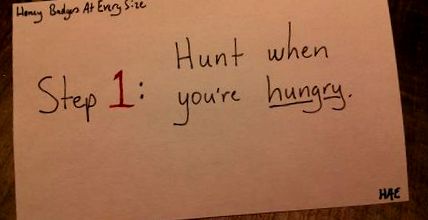 Honey Badgers At Every Size
Hunt when
Step 1: you're hungry.
HAE